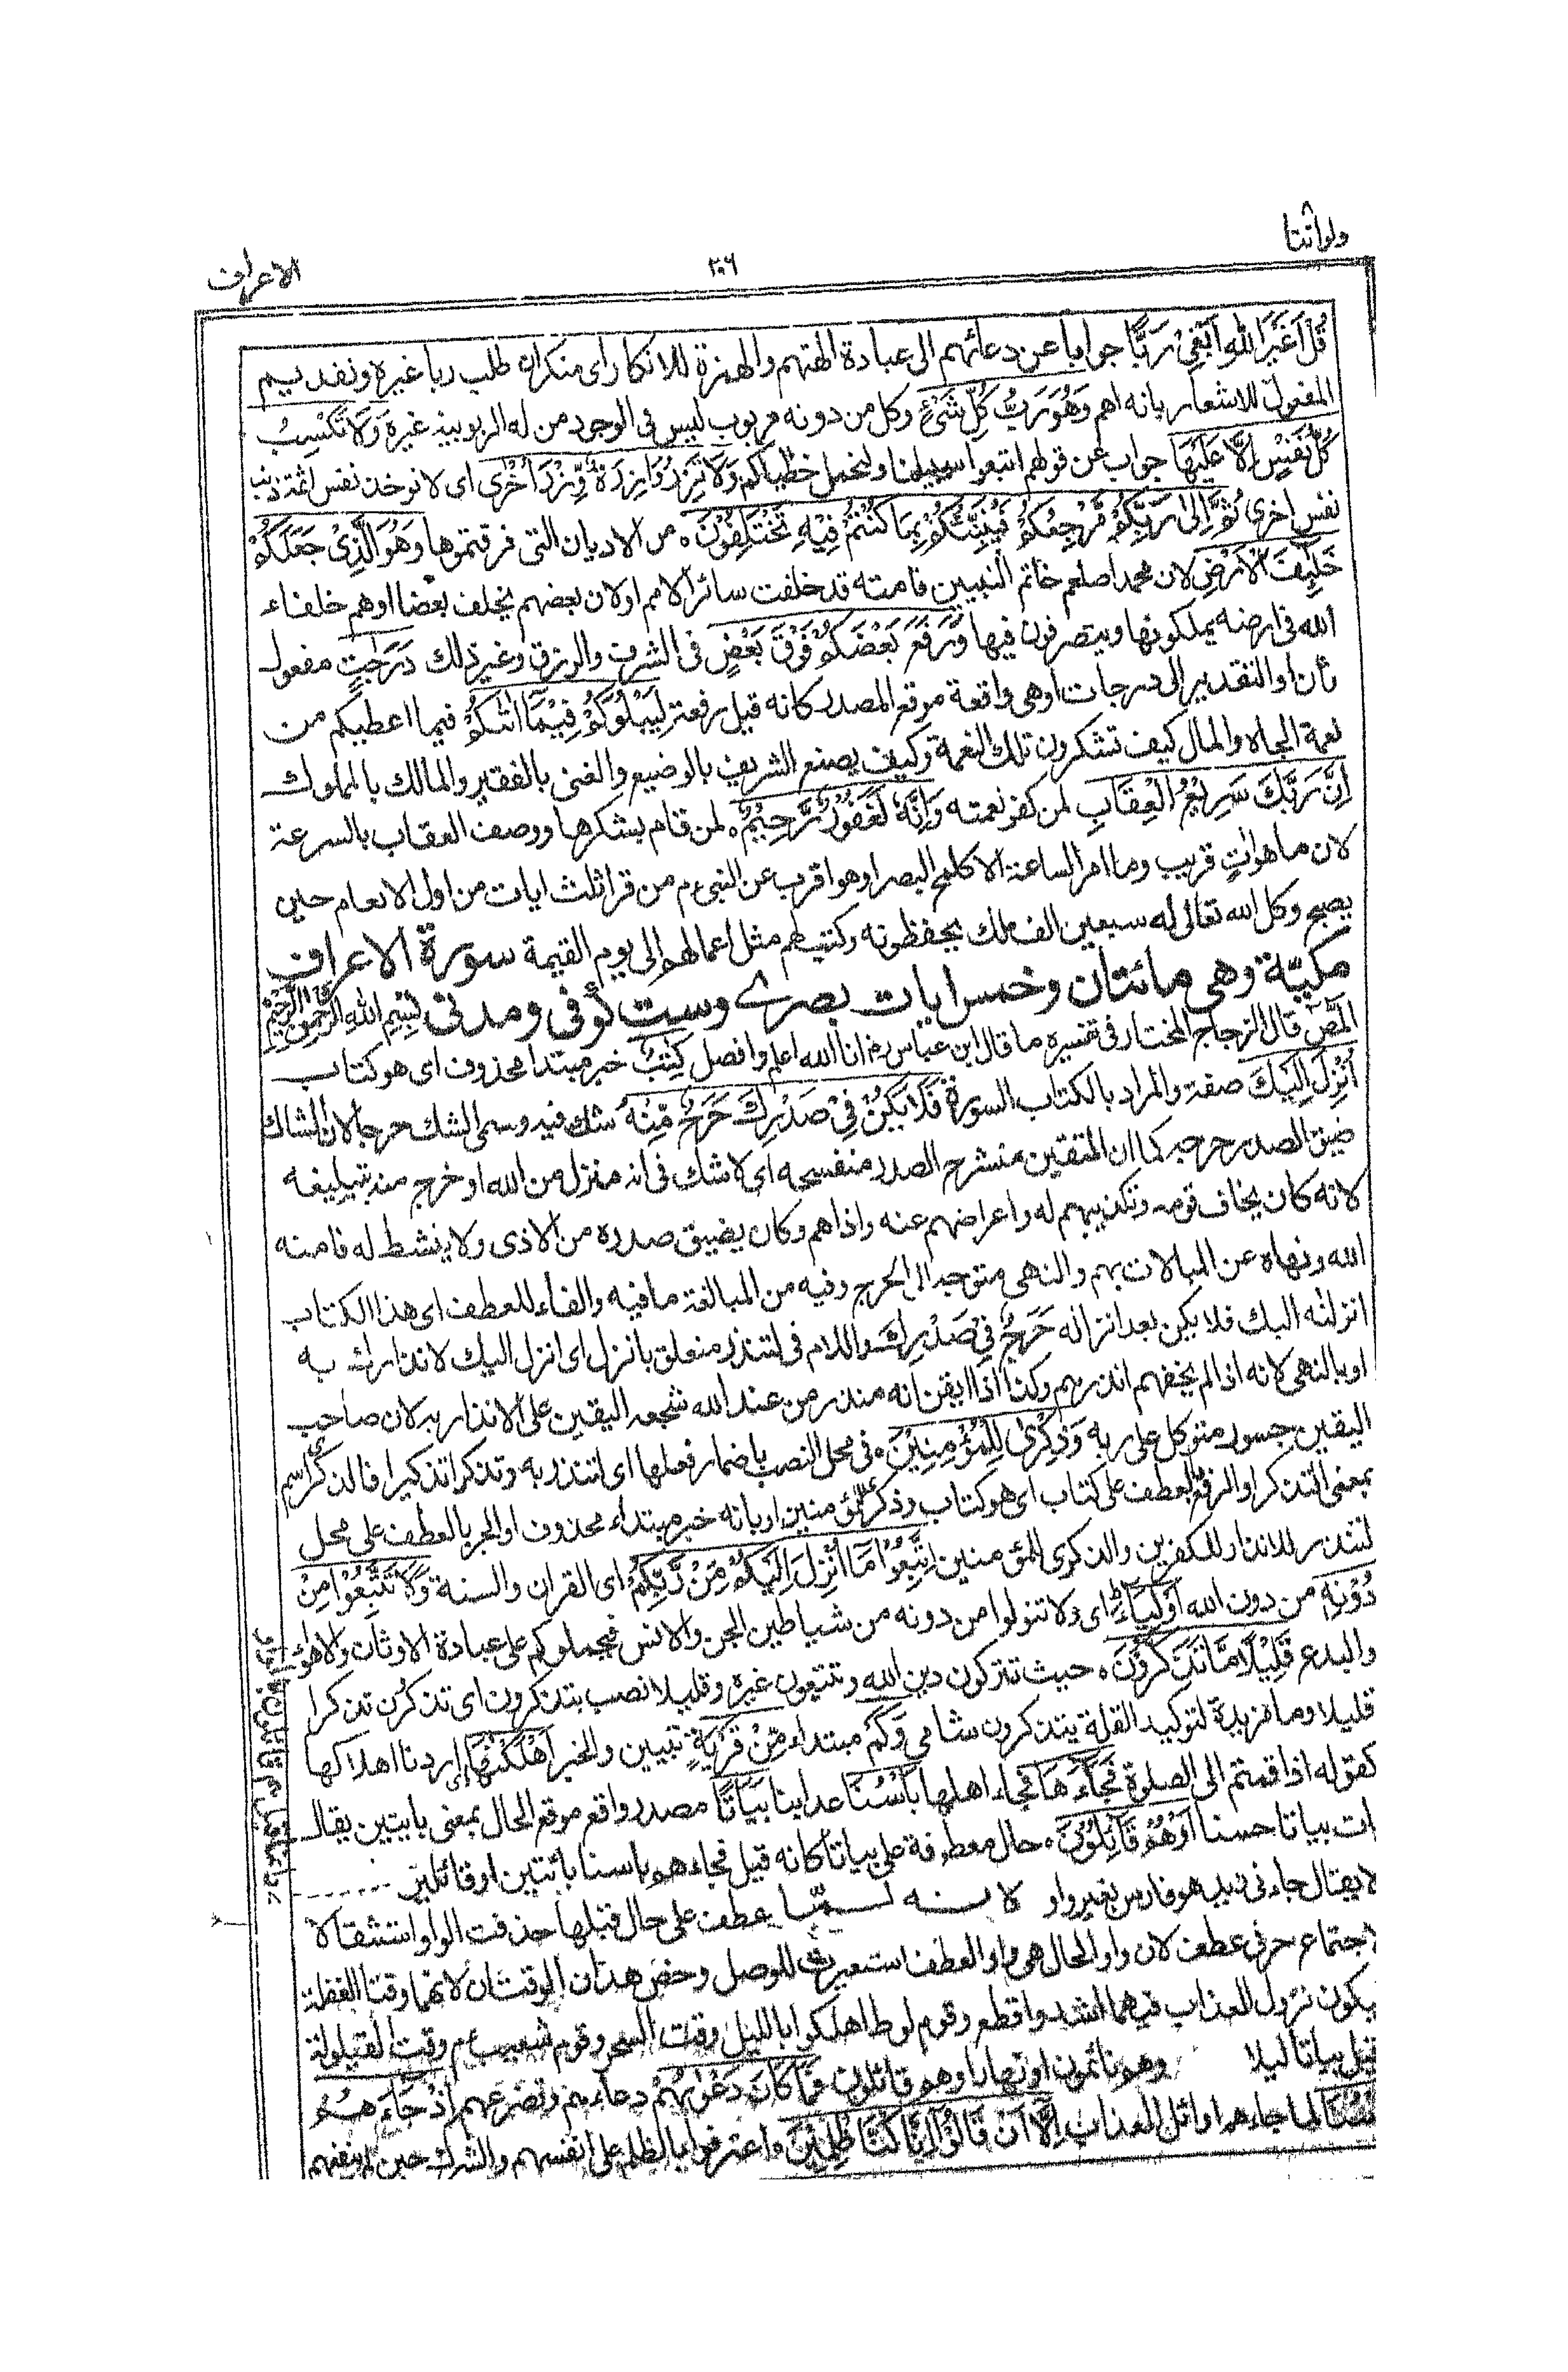 ولواننا ٨
٣٠٦
الاعراف
قُلْ اَغَيْرَ اللّٰهِ اَبْغِىْ رَبًّا جوابا عن دعائهم الى عبادة الهتهم والهمزة للانكار اى منكران طلب ربا غيره وتقديم
المفعول للاشعار بانه اهم وَهُوَ رَبُّ كُلِّ شَىْءٍ وكل من دونه مربوب ليس فى الوجود من له الربوبية غيره وَلَا تَكْسِبُ
كُلُّ نَفْسٍ اِلَّا عَلَيْهَا جواب عن قولهم اتبعوا سبيلنا ولنحمل خطٰياكم وَلَا تَزِرُ وَازِرَةٌ وِّزْرَ اُخْرٰى اى لا توخذ نفس اثمة بذنب
نفس اخرى ثُمَّ اِلٰى رَبِّكُمْ مَّرْجِعُكُمْ فَيُنَبِّئُكُمْ بِمَا كُنْتُمْ فِيْهِ تَخْتَلِفُوْنَ ه من الاديان التى فرقتموها وَهُوَ الَّذِىْ جَعَلَكُمْ
خَلٰٓئِفَ الْاَرْضِ لان محمدا صلعم خاتم النبيين فامته قد خلفت سائر الامم اولان بعضهم يخلف بعضا اوهم خلفاء
الله فى ارضه يملكونها ويتصرفون فيها وَرَفَعَ بَعْضَكُمْ فَوْقَ بَعْضٍ فى الشرف والرزق وغير ذلك دَرَجٰتٍ مفعول
ثان او التقدير الى درجات اوهى واقعة موقع المصدر كانه قيل رفعة لِّيَبْلُوَكُمْ فِيْمَآ اٰتٰىكُمْ فيما اعطيكم من
نعمة الجاه والمال كيف تشكرون تلك النعمة وكيف يصنع الشريف بالوضيع والغنى بالفقير والمالك بالمملوك
اِنَّ رَبَّكَ سَرِيْعُ الْعِقَابِ لمن كفر نعمته وَاِنَّهٗ لَغَفُوْرٌ رَّحِيْمٌ ه لمن قام بشكرها ووصف العقاب بالسرعة
لان ما هو اٰتٍ قريب وما امر الساعة الا كلمح البصر اوهو اقرب عن النبى ءم من قرا ثلث ايات من اول الانعام حين
يصبح وكل الله تعالى له سبعين الف ملك يحفظونه وكتب لهم مثل اعمالهم الى يوم القيمة سورة الاعراف
مكيّة وهى مائتان وخمس ايات بصرى وست كوفى ومدنى بِسْمِ اللّٰهِ الرَّحْمٰنِ الرَّحِيْمِ
الٓمّٓصٓ قال الزجاج المختار فى تفسيره ما قال ابن عباس رض انا الله اعلم وافصل كِتٰبٌ خبر مبتدا محذوف اى هو كتاب
اُنْزِلَ اِلَيْكَ صفته والمراد بالكتاب السورة فَلَا يَكُنْ فِىْ صَدْرِكَ حَرَجٌ مِّنْهُ شك فيه وسمى الشك حرجا لان الشاك
ضيق الصدر حرجه كما ان المتقين منشرح الصدر منفسحه اى لا شك فى انه منزل من الله او حرج منه بتبليغه
لانه كان يخاف قومه وتكذيبهم له واعراضهم عنه واذاهم وكان يضيق صدره من الاذى ولا ينشط له فامنه
الله ونهاه عن المبالات بهم والنهى متوجه الى الحرج وفيه من المبالغة ما فيه والفاء للعطف اى هذا الكتاب
انزلته اليك فلا يكن بعد انزاله حَرَجٌ فِىْ صَدْرِكَ واللام فى لتنذر متعلق بانزل اى انزل اليك لانذارك به
او بالنهى لانه اذا لم يخفهم انذرهم وكذا اذا ايقن انه منذر من عند الله شجعه اليقين على الانذار به لان صاحب
اليقين جسور متوكل على ربه وَذِكْرٰى لِلْمُؤْمِنِيْنَ ه فى محل النصب باضمار فعلها اى لتنذر به وتذكر تذكيرا فالذكرى اسم
بمعنى التذكير او الرفع بالعطف على كتاب اى هو كتاب وذكرى للمؤمنين او بانه خبر مبتداء محذوف او الجر بالعطف على محل
لتنذر للانذار للكفرين والذكرى للمؤمنين اِتَّبِعُوْا مَآ اُنْزِلَ اِلَيْكُمْ مِّنْ رَّبِّكُمْ اى القران والسنة وَلَا تَتَّبِعُوْا مِنْ
دُوْنِهٖٓ من دون الله اَوْلِيَآءَ اى ولا تتولوا من دونه من شياطين الجن والانس فيحملوكم على عبادة الاوثان والاهواء
والبدع قَلِيْلًا مَّا تَذَكَّرُوْنَ ه حيث تتركون دين الله وتتبعون غيره وقليلا نصب بتذكرون اى تذكرون تذكرا
قليلا وما مزيدة لتوكيد القلة يتذكرون شامى وَكَمْ مبتداء مِّنْ قَرْيَةٍ تبيين والخبر اَهْلَكْنٰهَا اى اردنا اهلاكها
كقوله اذا قمتم الى الصلوة فَجَآءَهَا فجاء اهلها بَاْسُنَا عذابنا بَيَاتًا مصدر واقع موقع الحال بمعنى بايتين يقال
بات بياتا حسنا اَوْهُمْ قَآئِلُوْنَ ه حال معطوفة على بياتا كانه قيل فجاءهم باسنا بائتين او قائلين
لا يقال جاءنى زيد هو فارس بغير واو لانه لـمّا عطف على حال قبلها حذفت الواو استثقالا
لاجتماع حرفى عطف لان واو الحال هى واو العطف استعيرت للوصل وخص هذان الوقتان لانهما وقتا الغفلة
فيكون نزول العذاب فيهما اشد وافظع وقوم لوط اهلكوا بالليل وقت السحر وقوم شعيب ءم وقت القيلولة
قيل بياتا ليلا وهم نائمون او نهارا وهم قائلون فَمَا كَانَ دَعْوٰىهُمْ دعاءهم وتضرعهم اِذْ جَآءَهُمْ
بَاْسُنَآ لما جاءهم اوائل العذاب اِلَّآ اَنْ قَالُوْآ اِنَّا كُنَّا ظٰلِمِيْنَ واعترفوا بالظلم على انفسهم والشرك حين لم ينفعهم